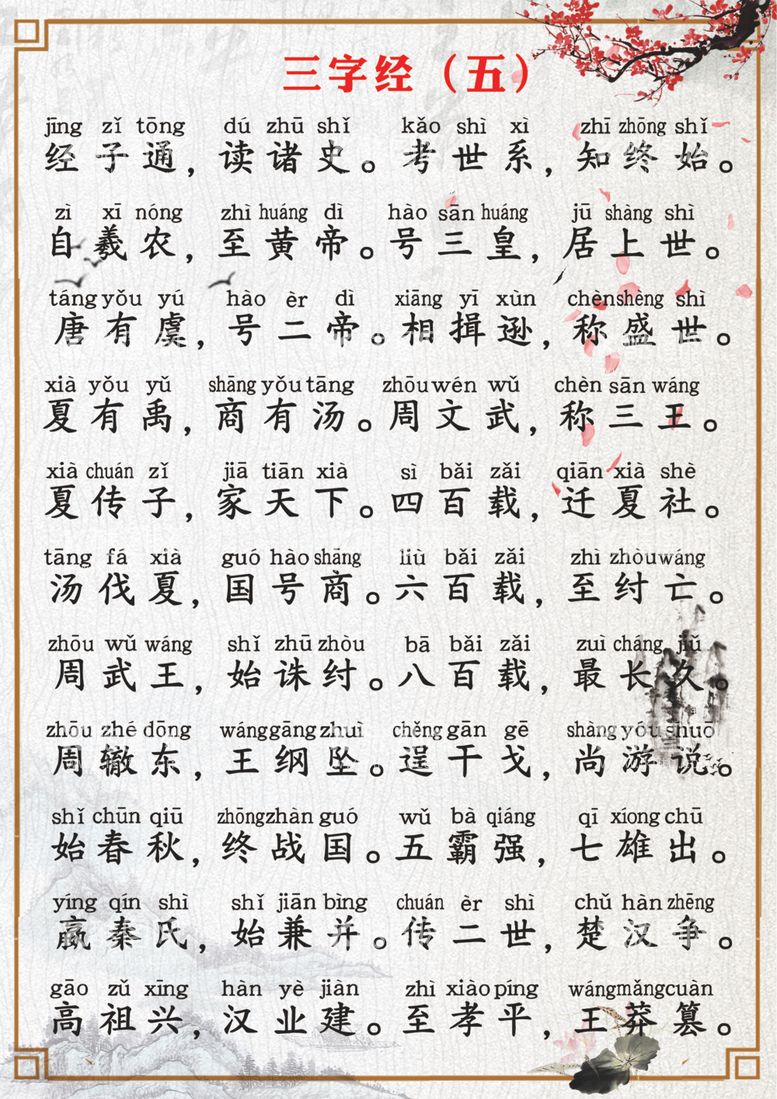 三字经（五）
jīng zǐ tōng dú zhū shǐ kǎo shì xì zhī zhōng shǐ
经子通，读诸史。考世系，知终始。
zì xī nóng zhì huáng dì hào sān huáng jū shàng shì
自羲农，至黄帝。号三皇，居上世。
táng yǒu yú hào èr dì xiāng yī xùn chèn shèng shì
唐有虞，号二帝。相揖逊，称盛世。
xià yǒu yǔ shāng yǒu tāng zhōu wén wǔ chèn sān wáng
夏有禹，商有汤。周文武，称三王。
xià chuán zǐ jiā tiān xià sì bǎi zǎi qiān xià shè
夏传子，家天下。四百载，迁夏社。
tāng fá xià guó hào shāng liù bǎi zǎi zhì zhòu wáng
汤伐夏，国号商。六百载，至纣亡。
zhōu wǔ wáng shǐ zhū zhòu bā bǎi zǎi zuì cháng jiǔ
周武王，始诛纣。八百载，最长久。
zhōu zhé dōng wáng gāng zhuì chěng gān gē shàng yóu shuō
周辙东，王纲坠。逞干戈，尚游说。
shǐ chūn qiū zhōng zhàn guó wǔ bà qiáng qī xióng chū
始春秋，终战国。五霸强，七雄出。
yíng qín shì shǐ jiān bìng chuán èr shì chǔ hàn zhēng
嬴秦氏，始兼并。传二世，楚汉争。
gāo zǔ xīng hàn yè jiàn zhì xiào píng wáng mǎng cuàn
高祖兴，汉业建。至孝平，王莽篡。